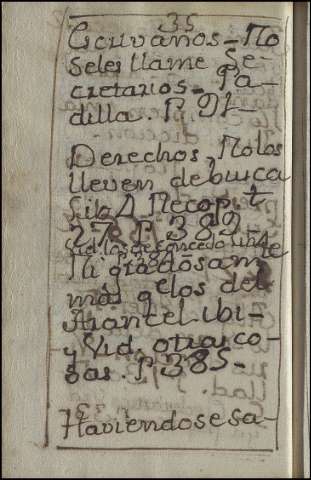 35
Escrivanos - No
seles llame Se
cretarios - Pa
dilla. P. 91
Derechos, No los
lleven de busca
Lib. 4 Recop. t
27. P. 389
P. 384
ni gradosam te
más q los del
Arancel ibi-
y Vid. otras co-
sas. P. 385 -
Haviendose sa-